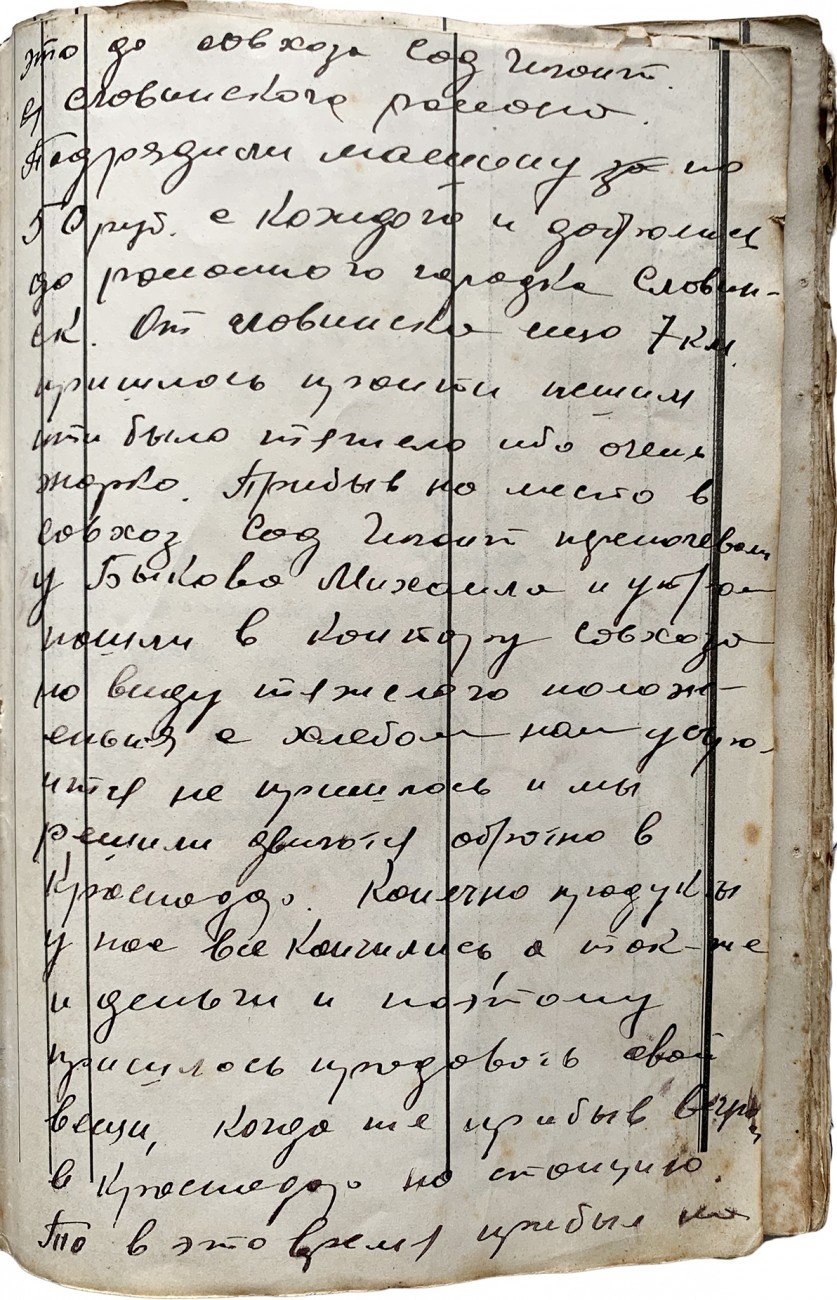 это до совхоза Сад Гигант
Словинского района.
Подрядили машину за по
50 руб. с Каждого и добрались
до районного городка Словин-
ск. От Словинска ещо 7 км.
пришлось пройти пешим
итти было тяжело ибо очень
жарко. Прибыв на место в
Совхоз Сад Гигант преночевали
у Быкова Михаила и утром
пошли в контору Совхоза
но виду тяжелого полож-
енья с хлебом нам устро-
ится не пришлось и мы
решили двигатся обратно в
Краснодар. Конечно продукты
у нас все Кончились а так-же
и деньги и поэтому
пришлось продовать свои
вещи, когда же прибыв
в Краснодар на станцию.
То в это время прибыл на